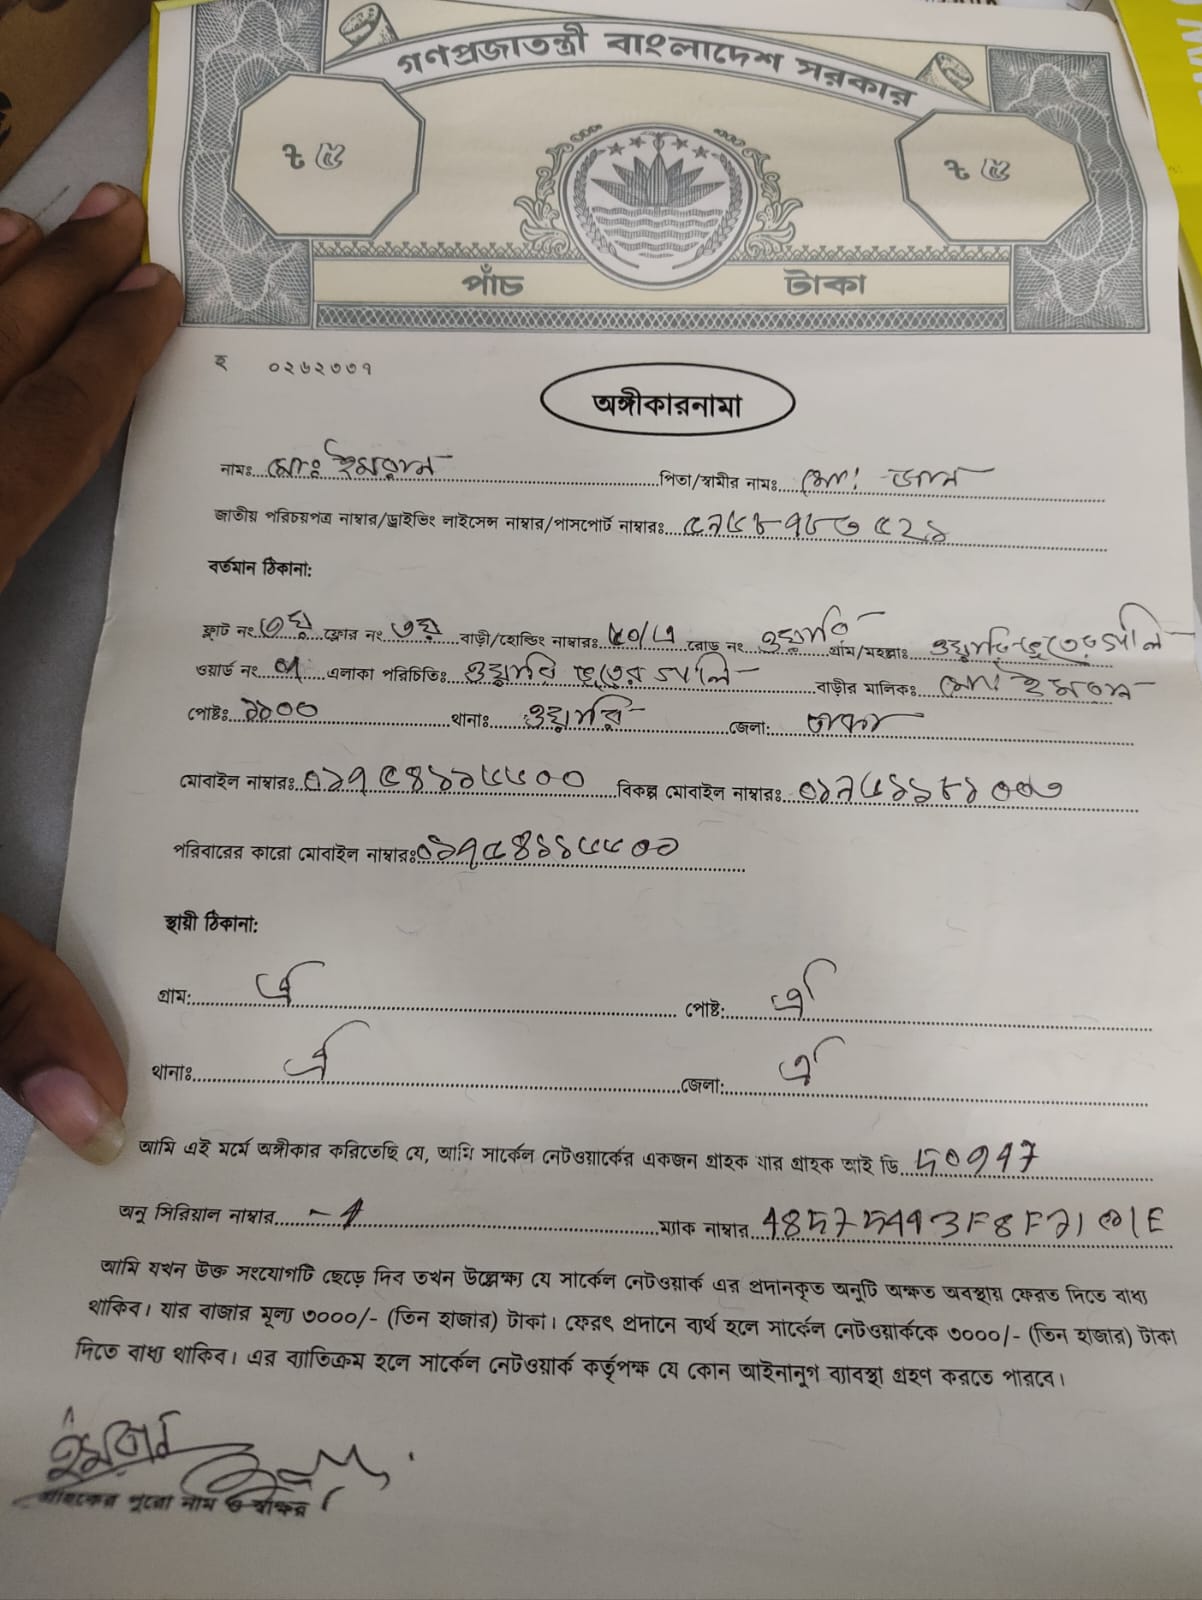 গণপ্রজাতন্ত্রী বাংলাদেশ সরকার
৳ ৫ ৳ ৫
পাঁচ টাকা
হ ০২৬২৩৩৭
অঙ্গীকারনামা
নামঃ মোঃ ইমরান পিতা/স্বামীর নামঃ মো: জান
জাতীয় পরিচয়পত্র নাম্বার/ড্রাইভিং লাইসেন্স নাম্বার/পাসপোর্ট নাম্বারঃ
বর্তমান ঠিকানা:
ফ্লাট নং ৩য় ফ্লোর নং ৩য় বাড়ী/হোল্ডিং নাম্বারঃ রোড নং ওয়ারি গ্রাম/মহল্লাঃ ওয়ারি ভূতের গলি
ওয়ার্ড নং এলাকা পরিচিতিঃ ওয়ারি ভূতের গলি বাড়ীর মালিকঃ মো: ইমরান
পোষ্টঃ ১১০০ থানাঃ ওয়ারি জেলা: ঢাকা
মোবাইল নাম্বারঃ ০১৭৫৪১১৫৫৩০০ বিকল্প মোবাইল নাম্বারঃ
পরিবারের কারো মোবাইল নাম্বারঃ
স্থায়ী ঠিকানা:
গ্রাম: ঐ পোষ্ট: ঐ
থানাঃ ঐ জেলা: ঐ
আমি এই মর্মে অঙ্গীকার করিতেছি যে, আমি সার্কেল নেটওয়ার্কের একজন গ্রাহক যার গ্রাহক আই ডি
অনু সিরিয়াল নাম্বার ম্যাক নাম্বার
আমি যখন উক্ত সংযোগটি ছেড়ে দিব তখন উল্লেক্ষ্য যে সার্কেল নেটওয়ার্ক এর প্রদানকৃত অনুটি অক্ষত অবস্থায় ফেরত দিতে বাধ্য
থাকিব। যার বাজার মূল্য ৩০০০/- (তিন হাজার) টাকা। ফেরৎ প্রদানে ব্যর্থ হলে সার্কেল নেটওয়ার্ককে ৩০০০/- (তিন হাজার) টাকা
দিতে বাধ্য থাকিব। এর ব্যাতিক্রম হলে সার্কেল নেটওয়ার্ক কর্তৃপক্ষ যে কোন আইনানুগ ব্যাবস্থা গ্রহণ করতে পারবে।
ইমরান
গ্রাহকের পুরো নাম ও স্বাক্ষর